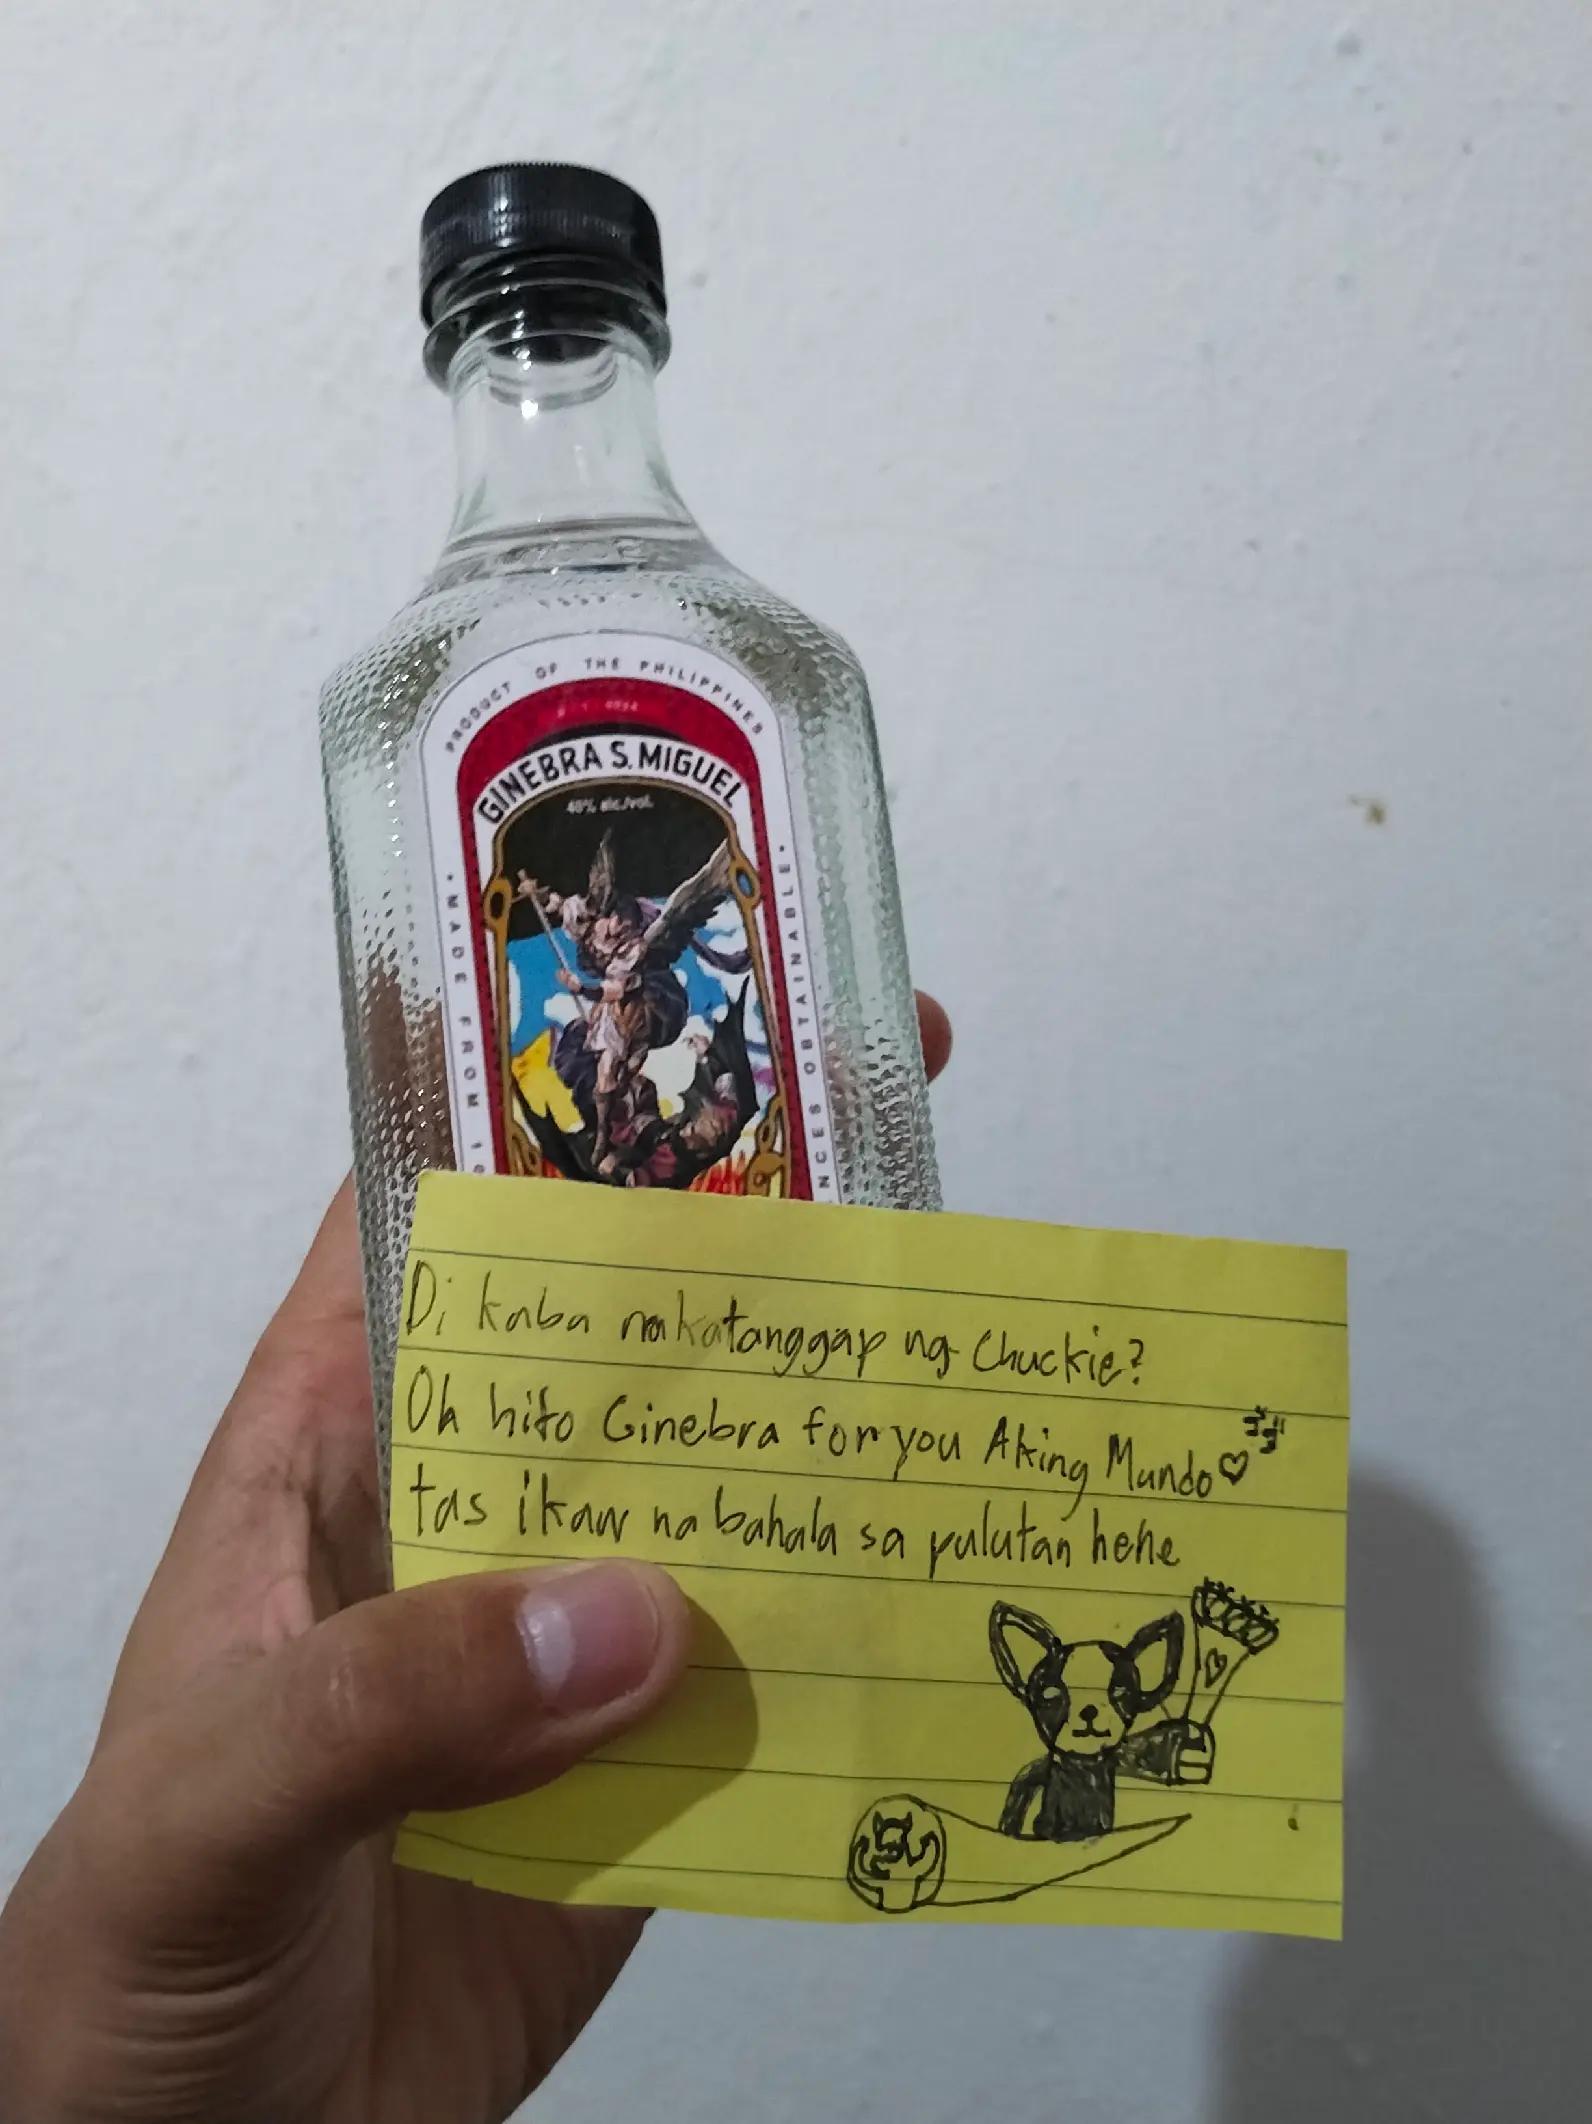 PRODUCT OF THE PHILIPPINES
GINEBRA S. MIGUEL
40% alc./vol.
• MADE FROM
NCES OBTAINABLE •
Di kaba nakatanggap ng Chuckie?
Oh hito Ginebra for you Aking Mundo♡
tas ikaw na bahala sa pulutan hehe